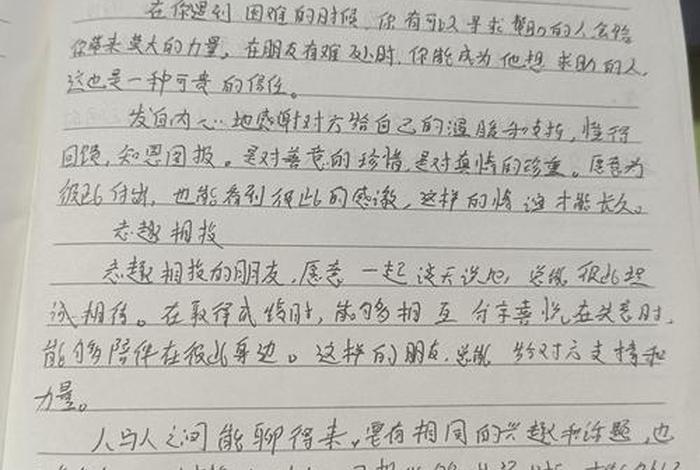 在你遇到困难的时候,你有可以寻求帮助的人会给
你带来莫大的力量。在朋友有难处时,你能成为他想求助的人,
这也是一种可贵的信任。
发自内心地感谢对方给自己的温暖和支持,懂得
回馈,知恩图报。是对善意的珍惜,是对真情的珍重。愿意为
彼此付出,也能看到彼此的感激,这样的情谊才能长久。
志趣相投
志趣相投的朋友,愿意一起谈天说地,总能彼此坦
诚相待。在取得成绩时,能够相互分享喜悦在失意时,
能够陪伴在彼此身边。这样的朋友,总能给对方支持和
力量。
人与人之间能聊得来,要有相同的兴趣和话题,也